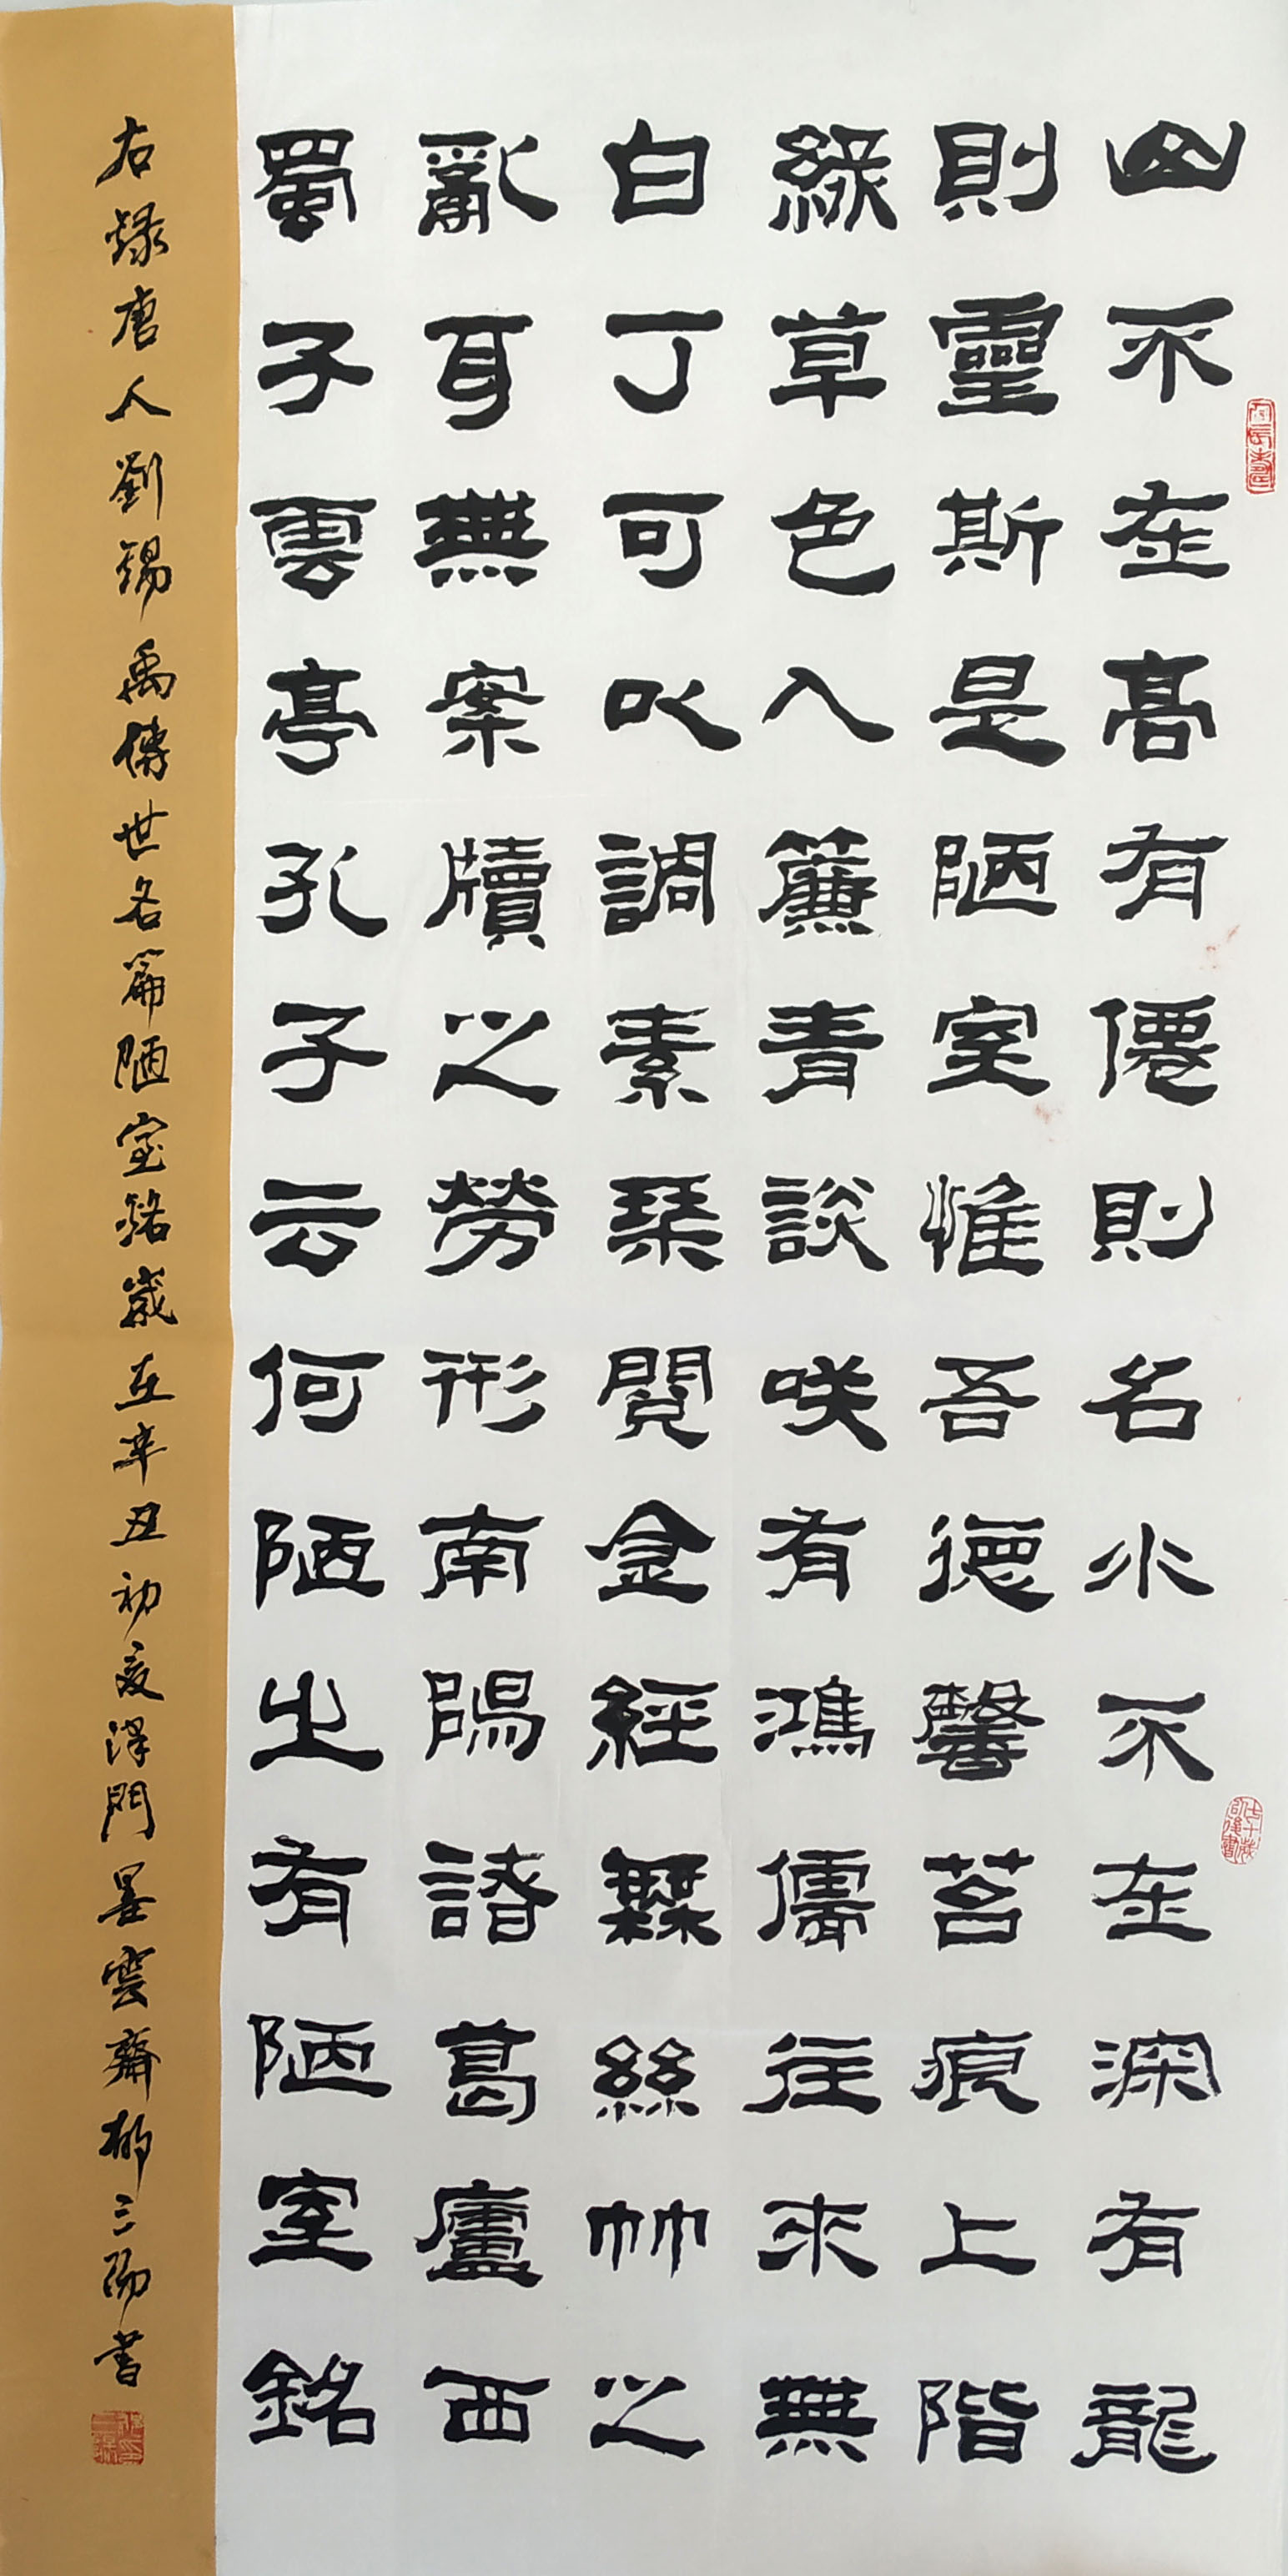 山不在高有僊則名水不在深有龍
則靈斯是陋室惟吾德馨苔痕上階
綠草色入簾青談咲有鴻儒往來無
白丁可以調素琴閱金經無絲竹之
亂耳無案牘之勞形南陽諸葛廬西
蜀子雲亭孔子云何陋之有陋室銘
右録唐人劉錫禹傳世名篇陋室銘歲在辛丑初夏津門墨雲齋柳三陽書